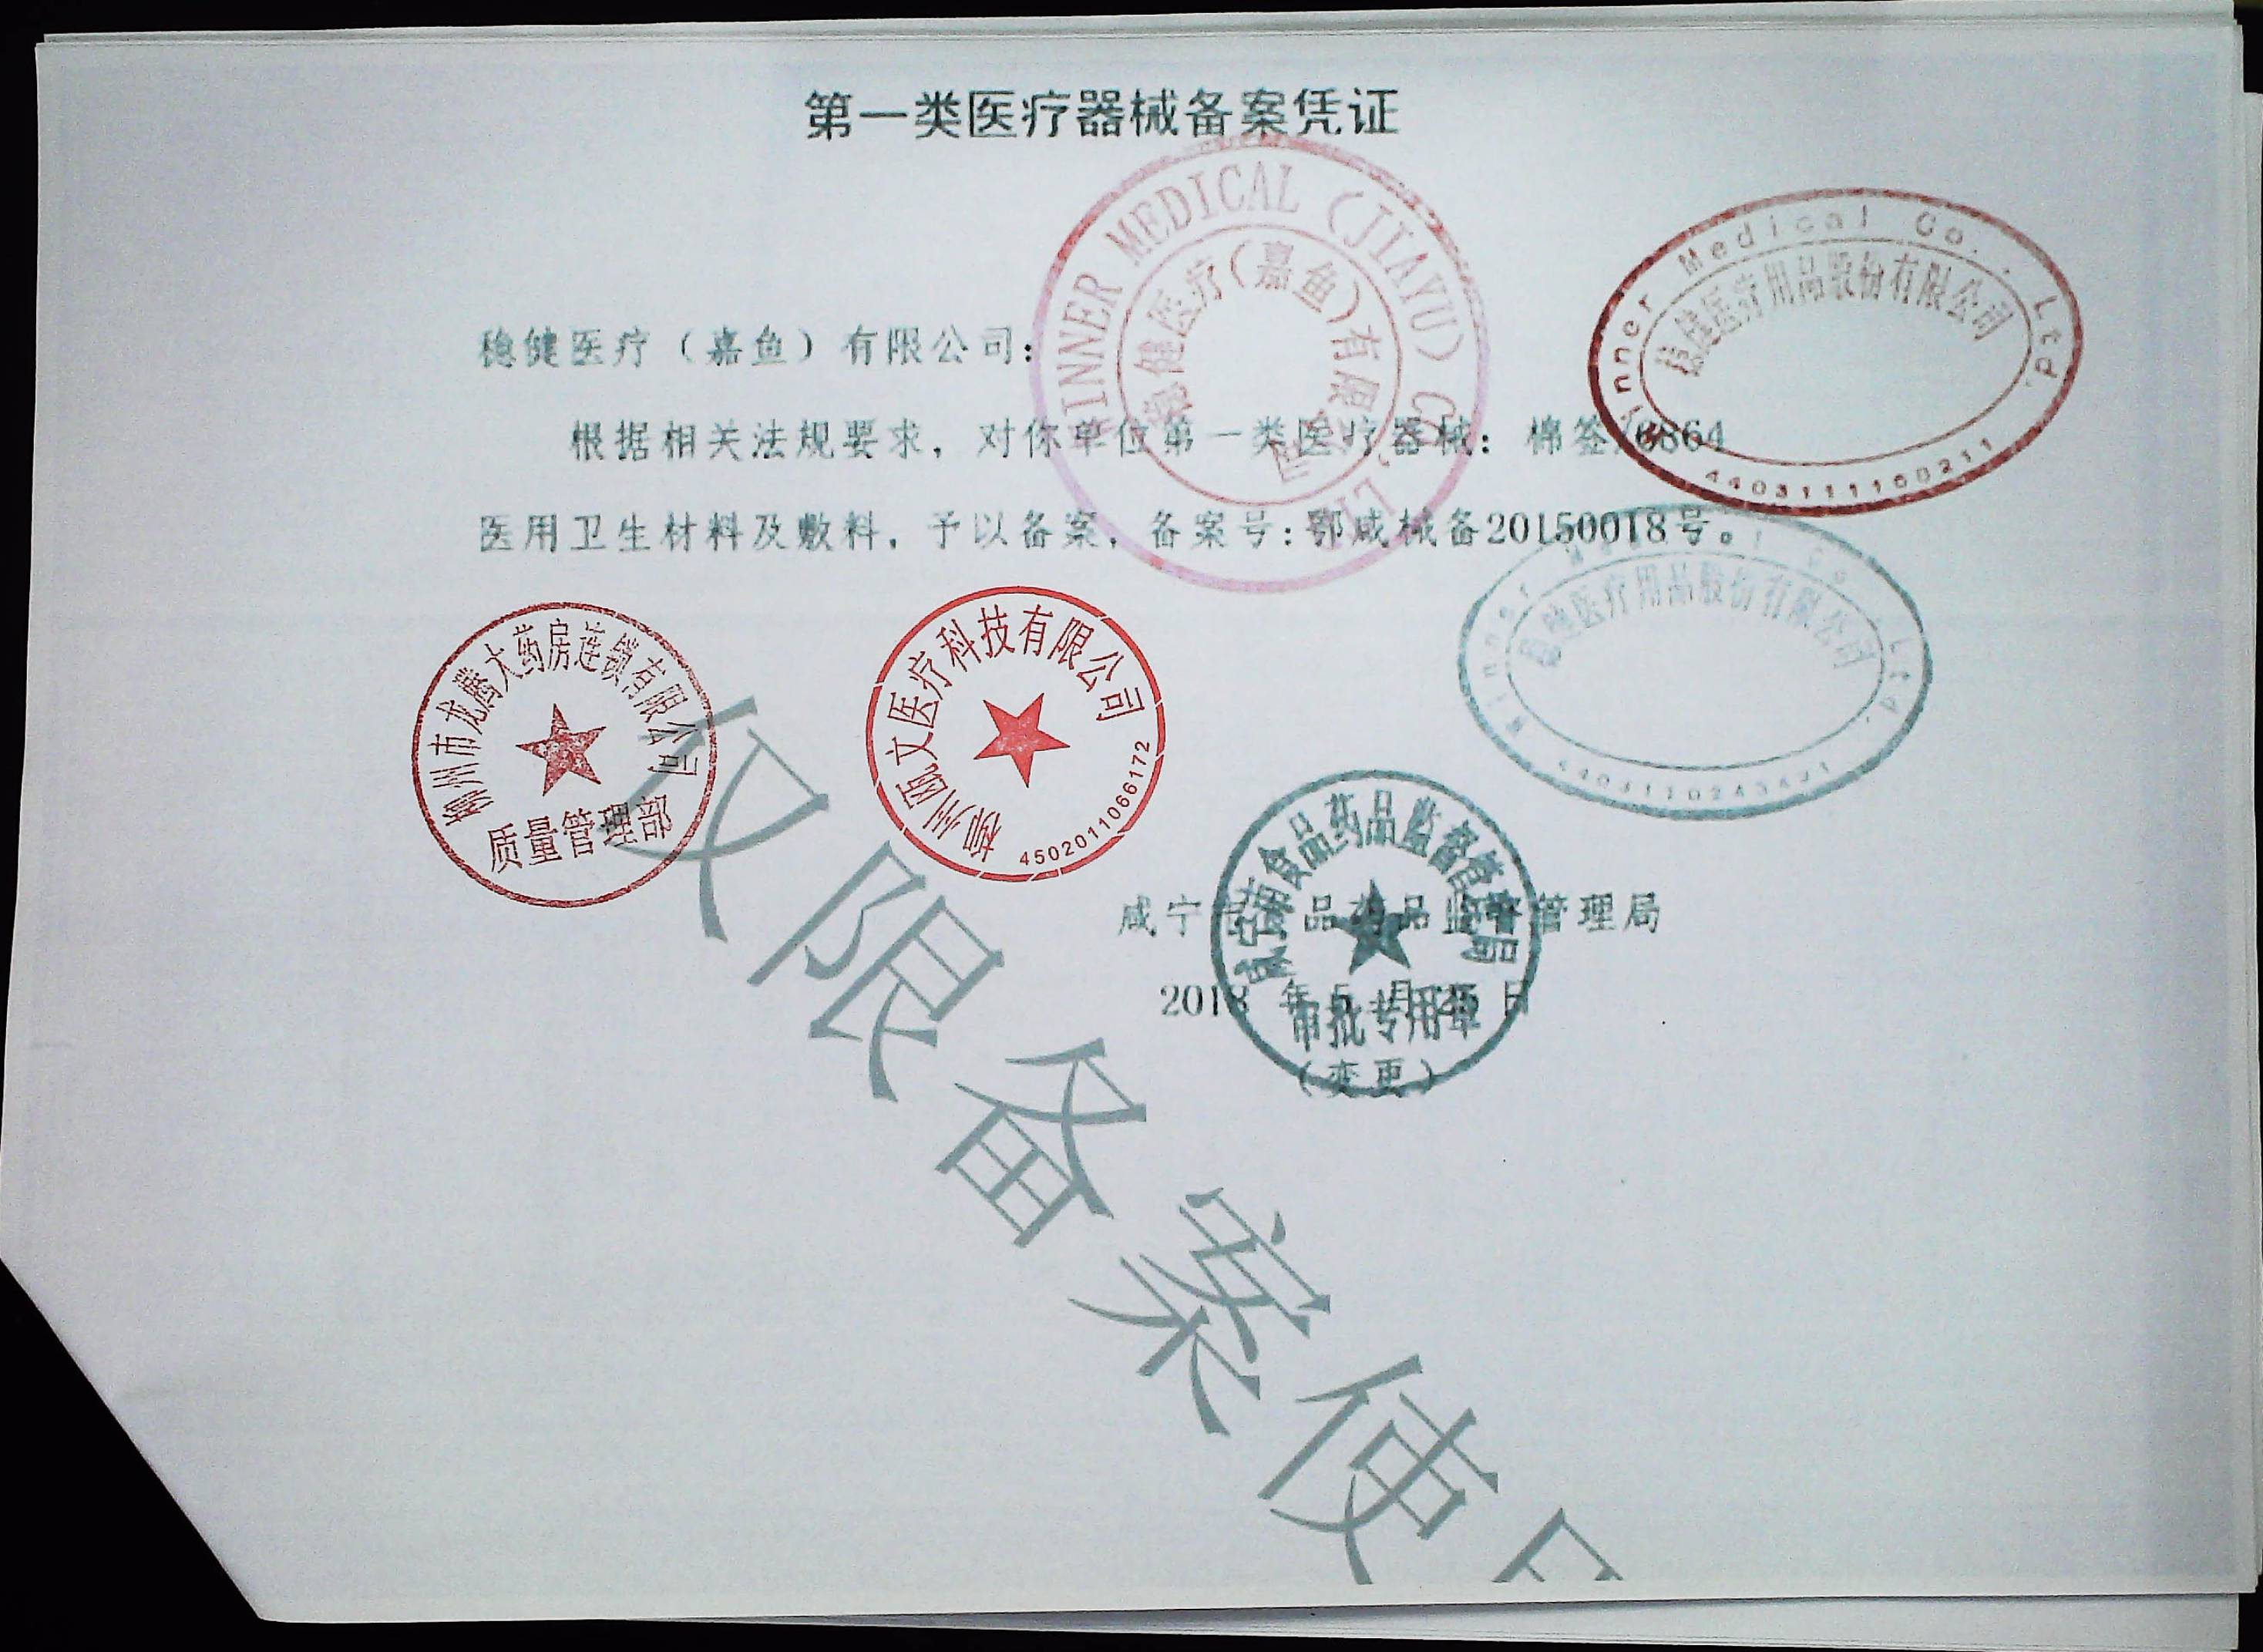 第一类医疗器械备案凭证
稳健医疗（嘉鱼）有限公司：
根据相关法规要求，对你单位第一类医疗器械：棉签/6864
医用卫生材料及敷料，予以备案，备案号：鄂咸械备20150018号。
INNER MEDICAL (JIAYU) CO., LTD
稳健医疗（嘉鱼）有限公司
Winner Medical Co., Ltd.
稳健医疗用品股份有限公司
4403111160211
Winner Medical Co., Ltd.
稳健医疗用品股份有限公司
柳州市龙腾大药房连锁有限公司
质量管理部
柳州瓯文医疗科技有限公司
4502011066172
咸宁市食品药品监督管理局
审批专用章
咸宁 品药品监督管理局
2018 年 5 月 日
（变更）
仅限备案使